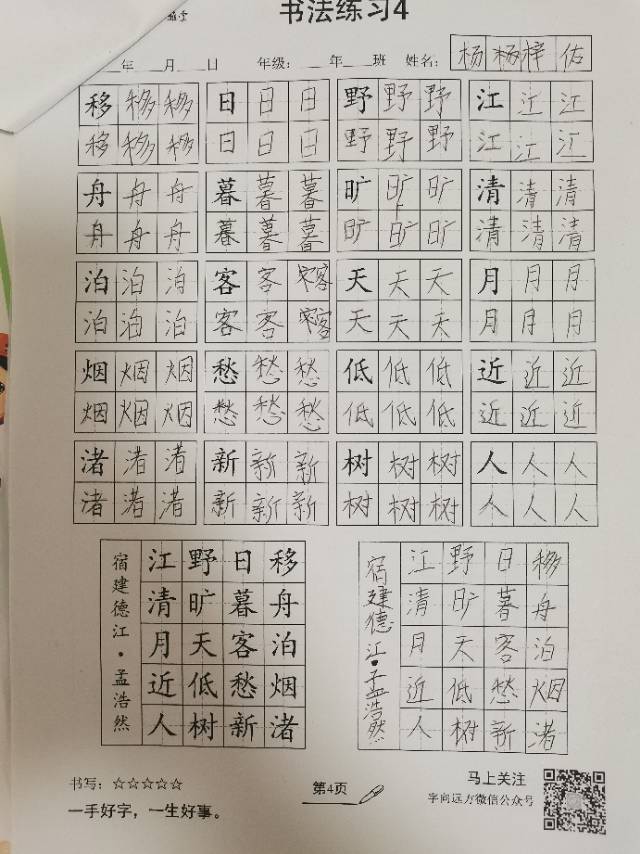 书法练习4
年 月 日 年级: 年 班 姓名: 杨杨梓佑
移移移 日日日 野野野 江江江
移移移 日日日 野野野 江江江
舟舟舟 暮暮暮 旷旷旷 清清清
舟舟舟 暮暮暮 旷旷旷 清清清
泊泊泊 客客客 天天天 月月月
泊泊泊 客客客 天天天 月月月
烟烟烟 愁愁愁 低低低 近近近
烟烟烟 愁愁愁 低低低 近近近
渚渚渚 新新新 树树树 人人人
渚渚渚 新新新 树树树 人人人
移舟泊烟渚
日暮客愁新
野旷天低树
江清月近人
宿建德江·孟浩然
移舟泊烟渚
日暮客愁新
野旷天低树
江清月近人
宿建德江·孟浩然
书写: ☆☆☆☆☆
一手好字，一生好事。
第4页
马上关注
字向远方微信公众号